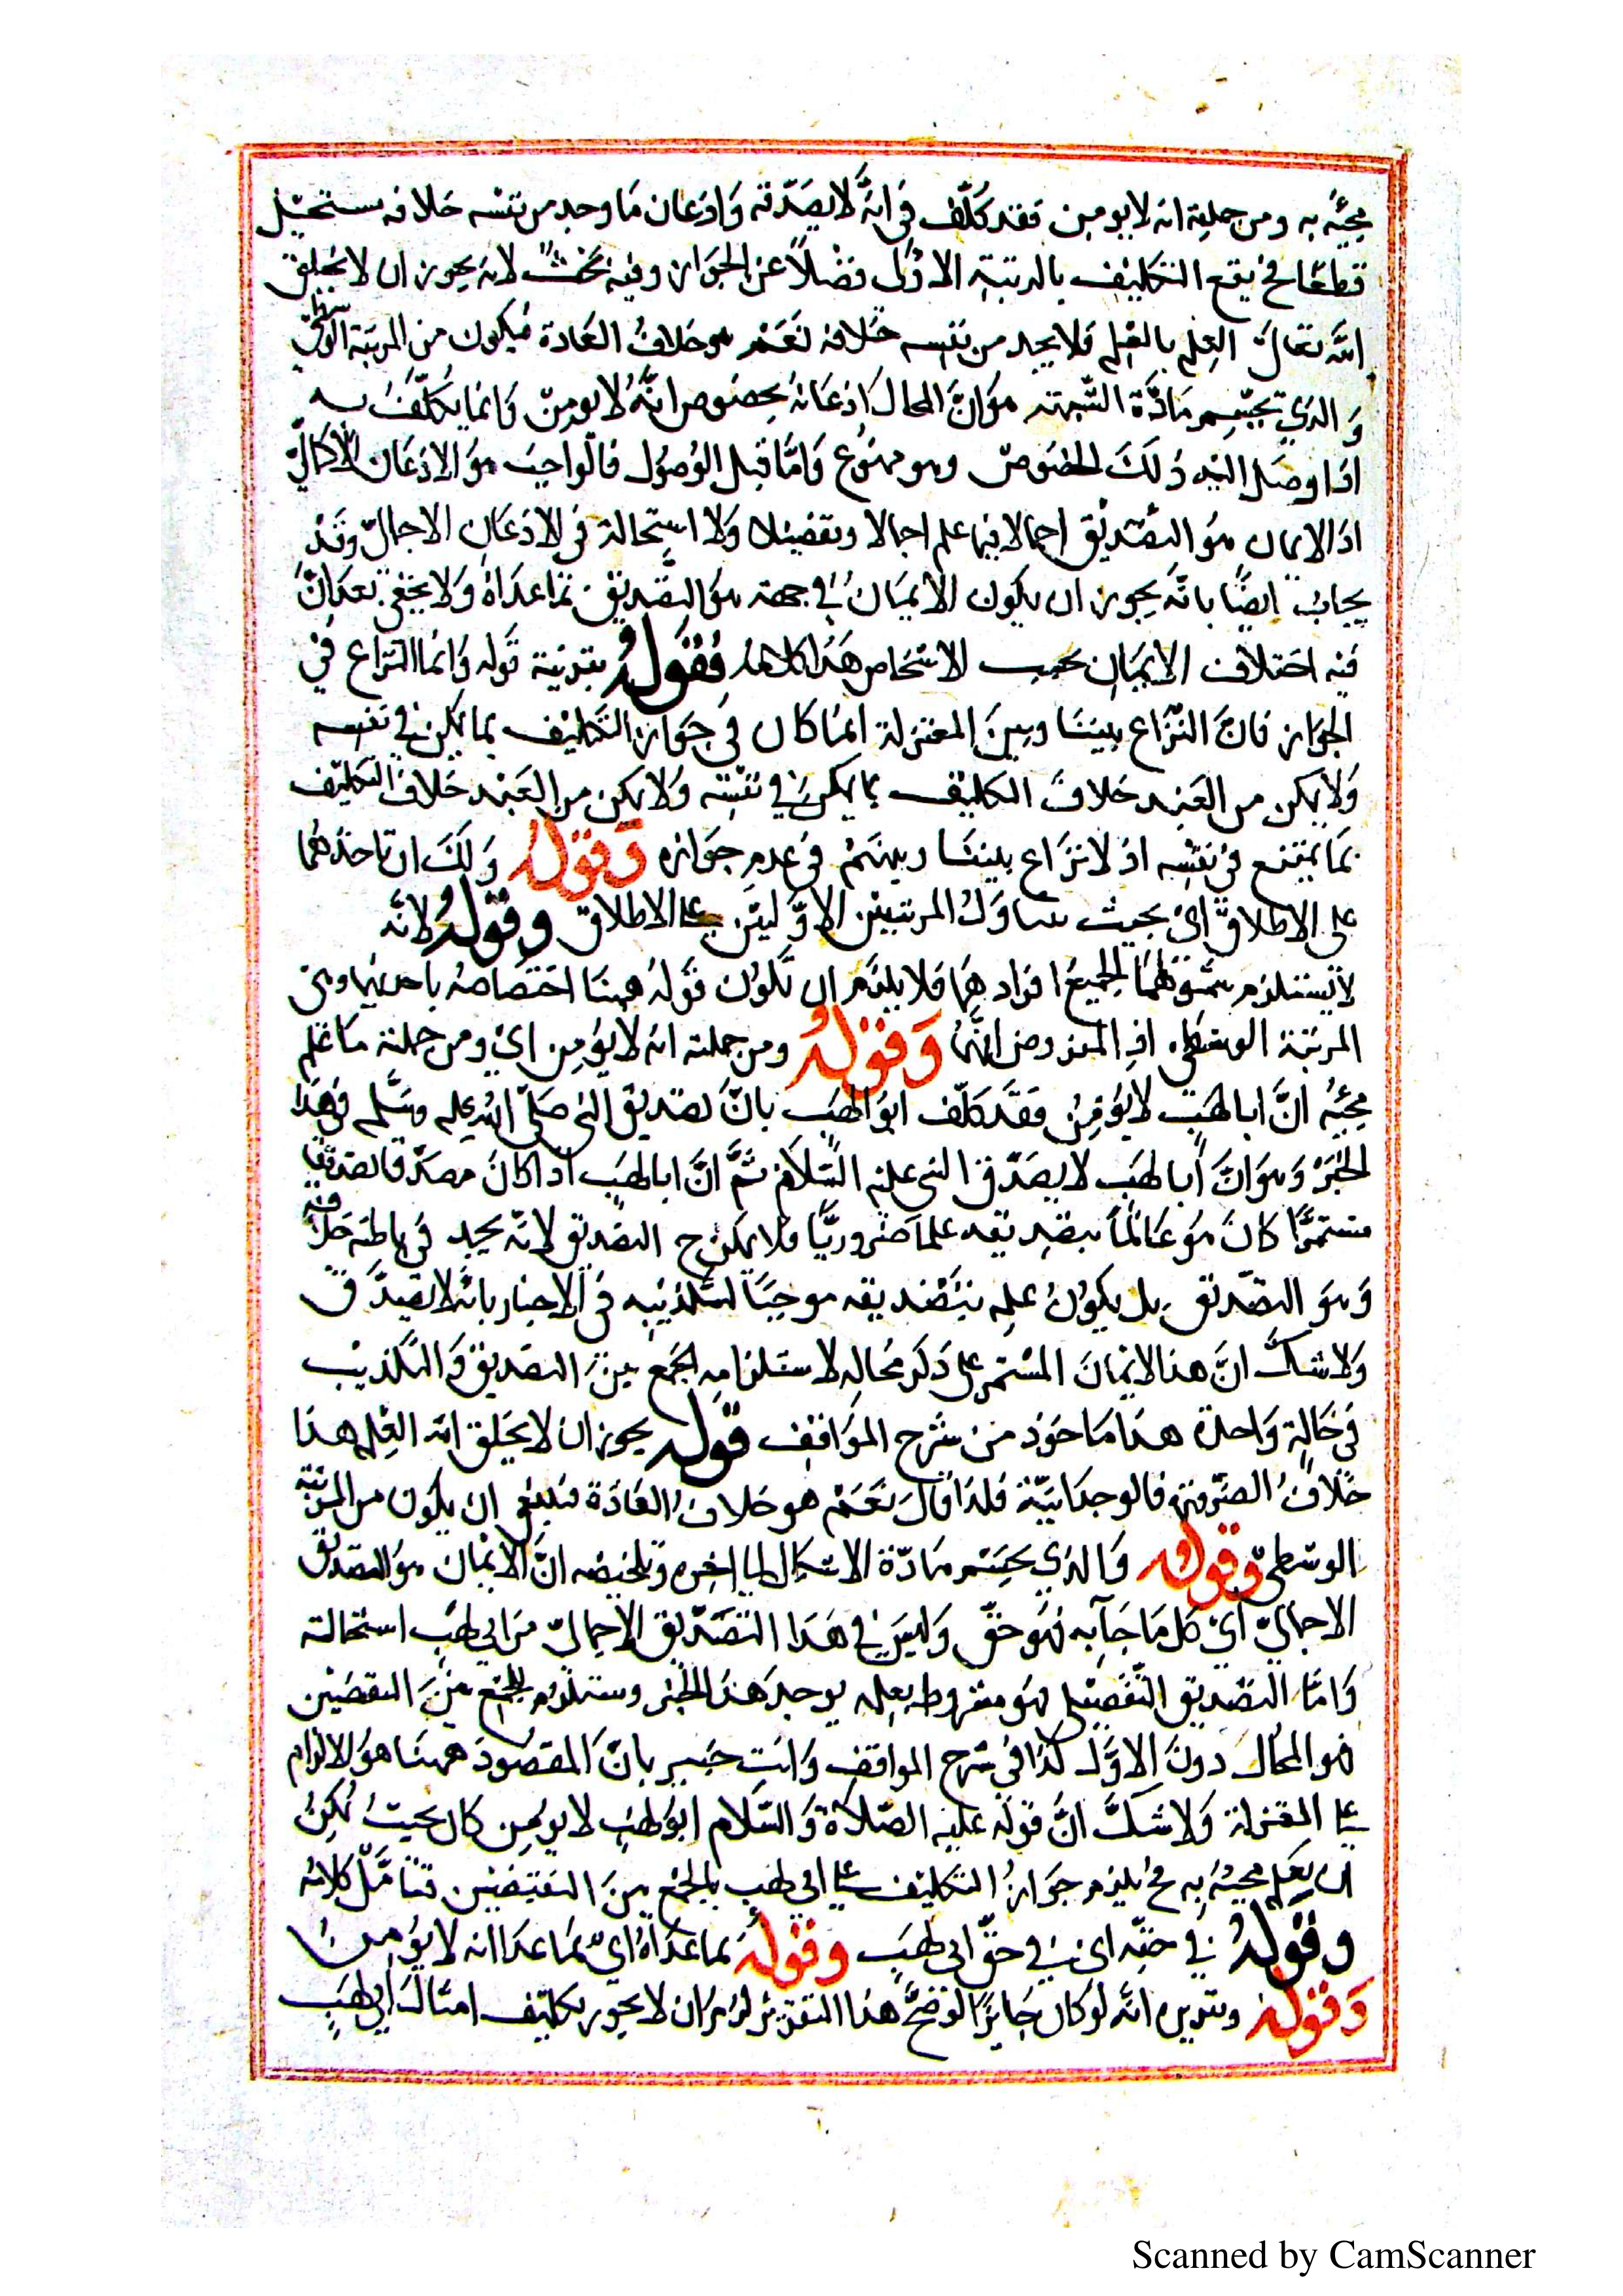 مجيئه به ومن جملته انه لا يومن فقد كلف في انه لا يصدقه واذعان ما وجد من نفسه خلافه مستحيل
قطعا فح يقع التكليف بالمرتبة الاولى فضلا عن الجواز وفيه بحث لانه يجوز ان لا يخلق
الله تعالى العلم بالعلم فلا يجد من نفسه خلافه نعم هو خلاف العادة فيكون من المرتبة الوسطى
والذي يحسم مادة الشبهة هو ان المحال اذعانه بخصوص انه لا يومن وانما يكلف به
اذا وصل اليه ذلك الخصوص وهو ممنوع واما قبل الوصول فالواجب هو الاذعان الاجمالي
اذ الايمان هو التصديق اجمالا فيما علم اجمالا وتفصيلا ولا استحالة في الاذعان الاجمالي وقد
يجاب ايضا بانه يجوز ان يكون الايمان في جهته هو التصديق بما عداه ولا يخفى بعده اذ
فيه اختلاف الايمان بحسب الاشخاص هذا كلامه فقوله بقرينة قوله وانما النزاع في
الجواز فان النزاع بيننا وبين المعتزلة انما كان في جواز التكليف بما يمكن في نفسه
ولا يمكن من العبد خلاف التكليف بما يمكن في نفسه ولا يمكن من العبد خلاف التكليف
بما يمتنع في نفسه اذ لا نزاع بيننا وبينهم في عدم جوازه وقوله ولك ان تاخذهما
على الاطلاق اي بحيث المرتبتين الاوليين على الاطلاق وقوله لانه
لا يستلزم شمولهما لجميع افرادهما فلا يلزم ان يكون قوله ههنا اختصاصه باحديهما وهي
المرتبة الوسطى اذ المفروض انهما وقوله ومن جملته انه لا يؤمن اي ومن جملة ما علم
مجيئه ان ابا لهب لا يؤمن فقد كلف ابو لهب بان تصديق النبي صلى الله عليه وسلم في هذا
الخبر وهو ان ابا لهب لا يصدق النبي عليه السلام ثم ان ابا لهب اذا كان مصدقا تصديقا
مستمرا كان هو عالما بتصديقه علما ضروريا فلا يمكن ح التصديق لانه يجد في باطنه خلافه
وهو التصديق بل يكون علمه بتصديقه موجبا لتكذيبه في الاخبار بانه لا يصدق
ولا شك ان هذا الايمان المستمر على ذكر محاله لاستلزامه الجمع بين التصديق والتكذيب
في حالة واحدة هذا ماخوذ من شرح المواقف قوله يجوز ان لا يخلق الله العلم هذا
خلاف الضرورة فالوجدانية فلذا قال نعم هو خلاف العادة فينبغي ان يكون من المرتبة
الوسطى وقوله والذي يحسم مادة الاشكال الى اخره وتلخيصه ان الايمان هو التصديق
الاجمالي اي كل ما جآ به فهو حق وليس في هذا التصديق الاجمالي من ابي لهب استحالة
واما التصديق التفصيلي فهو مشروط بعلمه بوجد هذا الخبر ومستلزم للجمع بين النقيضين
فهو المحال دون الاول كذا في شرح المواقف وانت خبير بان المقصود ههنا هو الالزام
على المعتزلة ولا شك ان قوله عليه الصلاة والسلام ابو لهب لا يومن كان بحيث يمكن
ان يعلم مجيئه به فح يلزم جواز التكليف على ابي لهب بالجمع بين النقيضين فتامل كلامه
وقوله في حقه اي في حق ابي لهب وقوله بما عداه اي بما عدا انه لا يؤمن
وقوله وتقريره انه لو كان جايزا لوضح هذا التقرير لزم ان لا يجوز تكليف امثال ابي لهب
Scanned by CamScanner